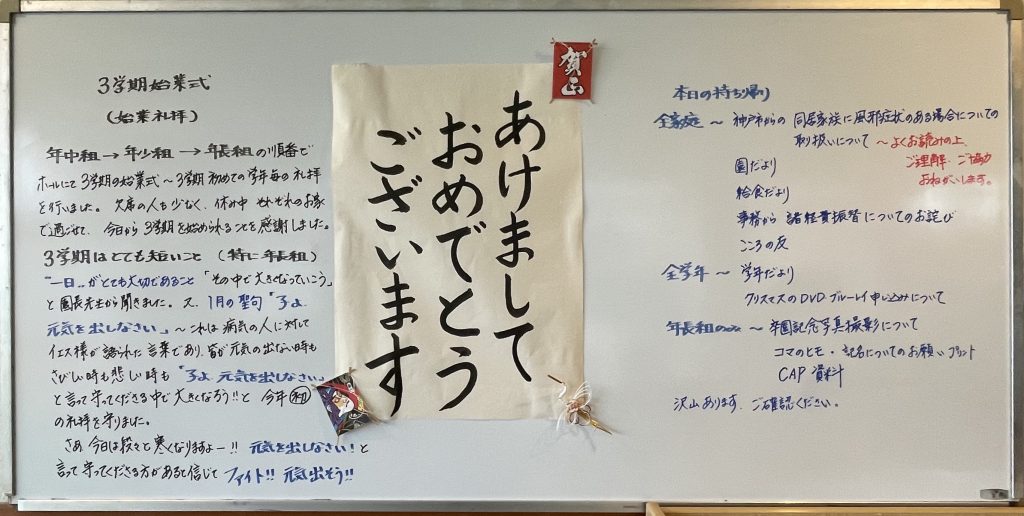 3学期始業式
(始業礼拝)
年中組→年少組→年長組の順番で
ホールにて3学期の始業式〜3学期初めての学年毎の礼拝
を行いました。欠席の人も少なく、休み中それぞれのお家
で過ごせて、今日から3学期を始められることを感謝しました。
3学期はとても短いこと(特に年長組)
"一日"がとても大切であること「その中で大きくなっていこう」
と園長先生から聞きました。又、1月の聖句「子よ、
元気を出しなさい」〜これは病気の人に対して
イエス様が語られた言葉であり、皆が元気の出ない時も
さびしい時も悲しい時も「子よ、元気を出しなさい」
と言って守ってくださる中で大きくなろう!!と今年初
の礼拝を守りました。
さあ、今日は段々と寒くなりますよー!!元気を出しなさい!と
言って守ってくださる方があると信じてファイト!!元気出そう!!
賀正
あけまして
おめでとう
ございます
本日の持ち帰り
全家庭〜神戸市からの同居家族に風邪症状のある場合についての
取扱いについて〜よくお読みの上、
ご理解、ご協力
おねがいします。
園だより
給食だより
事務から諸経費振替についてのお詫び
こころの友
全学年〜学年だより
クリスマスのDVDブルーレイ申し込みについて
年長組のみ〜卒園記念写真撮影について
コマのヒモ・記名についてのお願いプリント
CAP資料
沢山あります、ご確認ください。